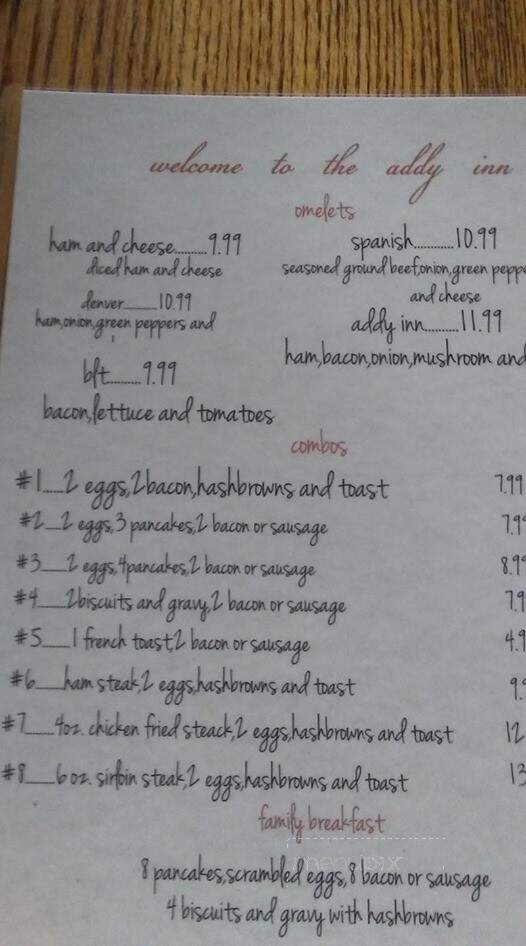 welcome to the addy inn
omelets
ham and cheese........9.99
diced ham and cheese
denver........10.99
ham,onion,green peppers and
blt........9.99
bacon,lettuce and tomatoes
spanish..........10.99
seasoned ground beef,onion,green peppe
and cheese
addy inn.........11.99
ham,bacon,onion,mushroom and
combos
#1___2 eggs,2bacon,hashbrowns and toast 7.99
#2__2 eggs,3 pancakes,2 bacon or sausage 7.99
#3___2 eggs,4pancakes,2 bacon or sausage 8.99
#4___2biscuits and gravy,2 bacon or sausage 7.9
#5___1 french toast,2 bacon or sausage 4.9
#6___ham steak,2 eggs,hashbrowns and toast 9.
#7___4oz. chicken fried steack,2 eggs,hashbrowns and toast 12
#8___6 oz. sirloin steak,2 eggs,hashbrowns and toast 13
family breakfast
8 pancakes,scrambled eggs,8 bacon or sausage
4 biscuits and gravy with hashbrowns